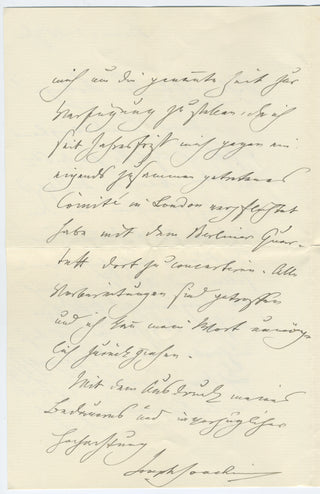 mich um die genannte Zeit zur
Verfügung zu stellen, da ich
seit Jahresfrist mich gegen ein
eigends zusammen getretenes
Comité in London verpflichtet
habe mit dem Berliner Quar-
tett dort zu concertiren. Alle
Vorbereitungen sind getroffen
und ich kann mein Wort unmög-
lich zurückziehen.
Mit dem Ausdruck meines
Bedauerns und vorzüglicher
Hochachtung
Joseph Joachim